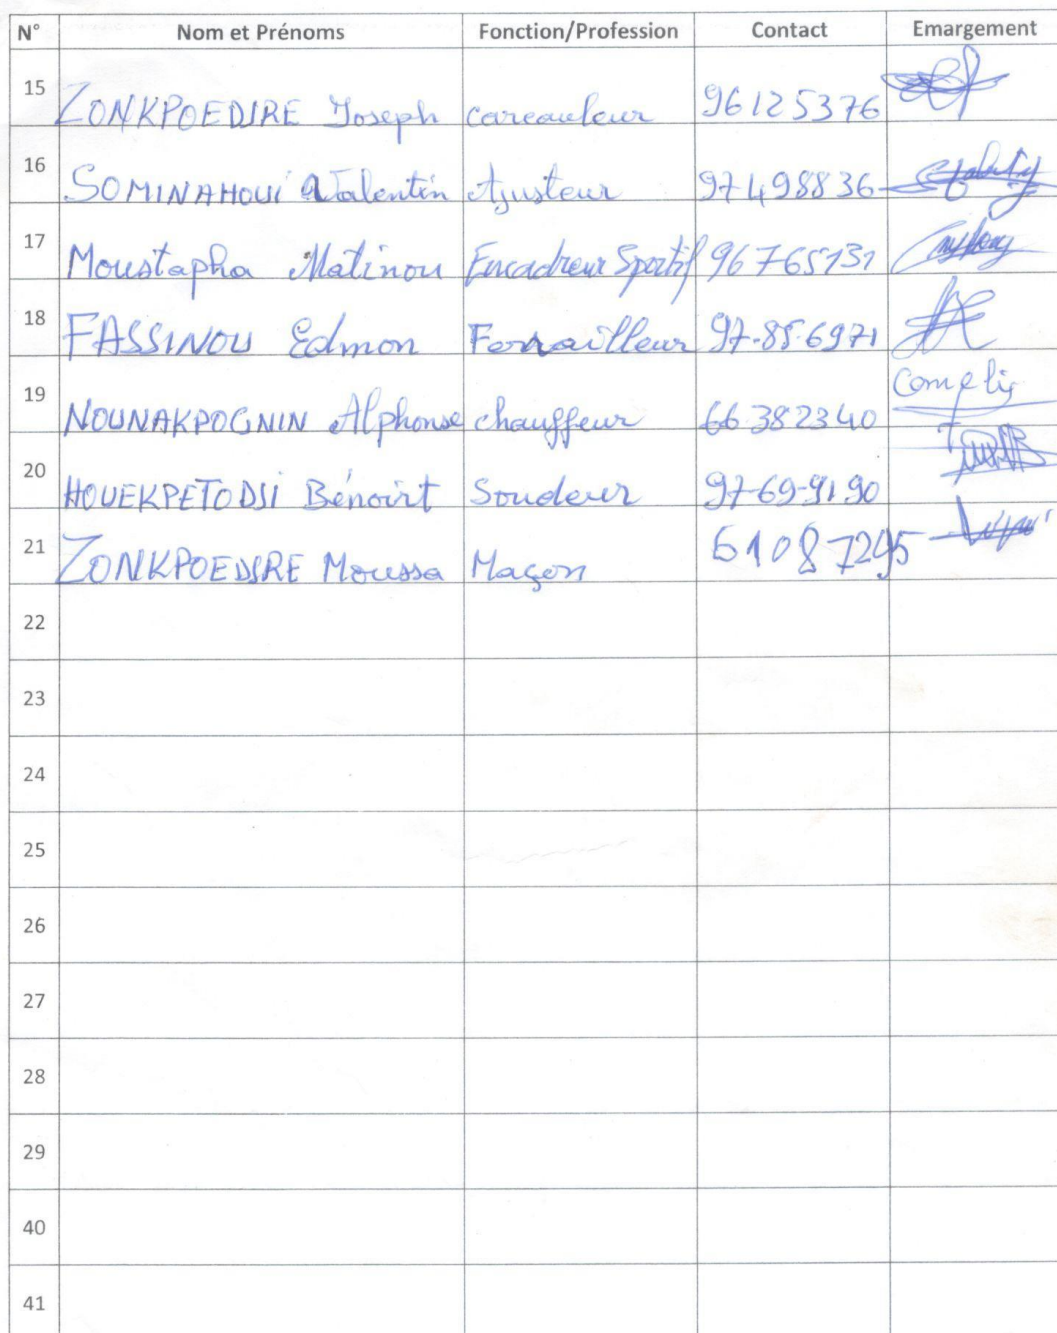 N° Nom et Prénoms Fonction/Profession Contact Emargement
15 ZONKPOEDJRE Joseph careauleur 96125376
16 SOMINAHOUI Valentin Ajusteur 97498836
17 Moustapha Matinou Encadreur Sportif 96765131
18 FASSINOU Edmon Ferrailleur 97-85-6971
19 NOUNAKPOGNIN Alphonse chauffeur 66382340
20 HOUEKPETODJI Bénoirt Soudeur 97-69-9190
21 ZONKPOEDJRE Moussa Maçon 61087295
22
23
24
25
26
27
28
29
40
41